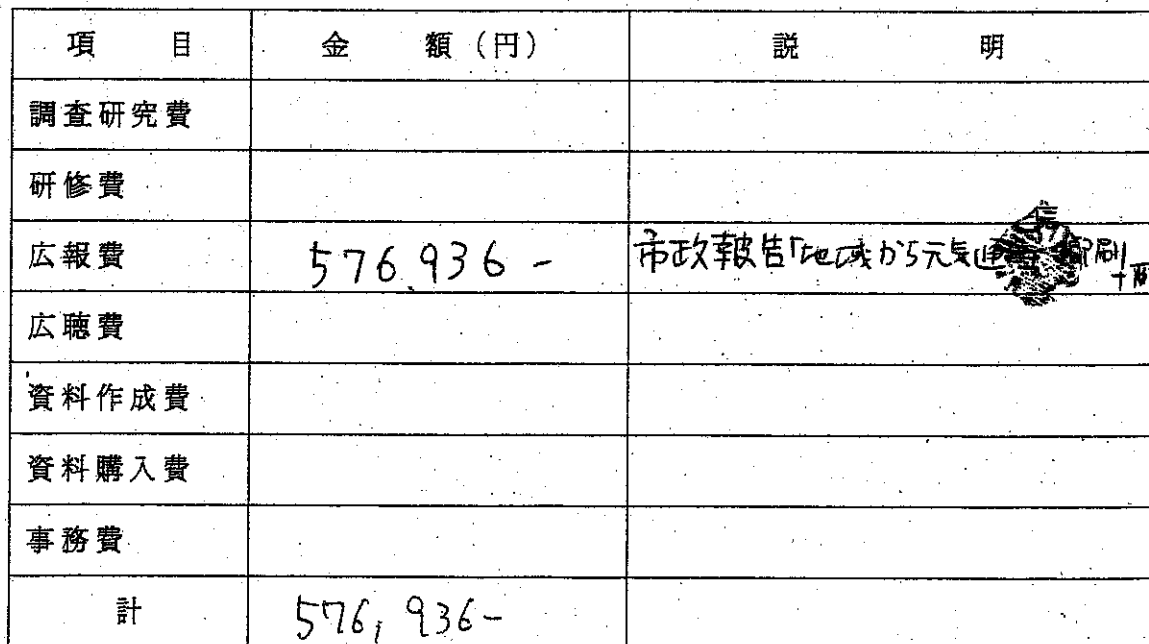 項 目 金 額 (円) 説 明
調査研究費
研修費
広報費 576.936- 市政報告「地域から元気
広聴費
資料作成費
資料購入費
事務費
計 576,936-